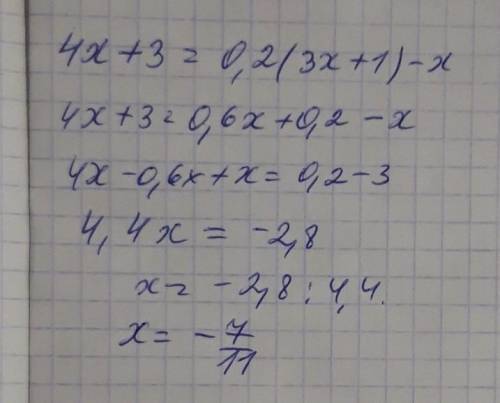 4x+3=0,2(3x+1)-x
4x+3=0,6x+0,2-x
4x-0,6x+x=0,2-3
4,4x=-2,8
x=-2,8:4,4.
x=-7/11